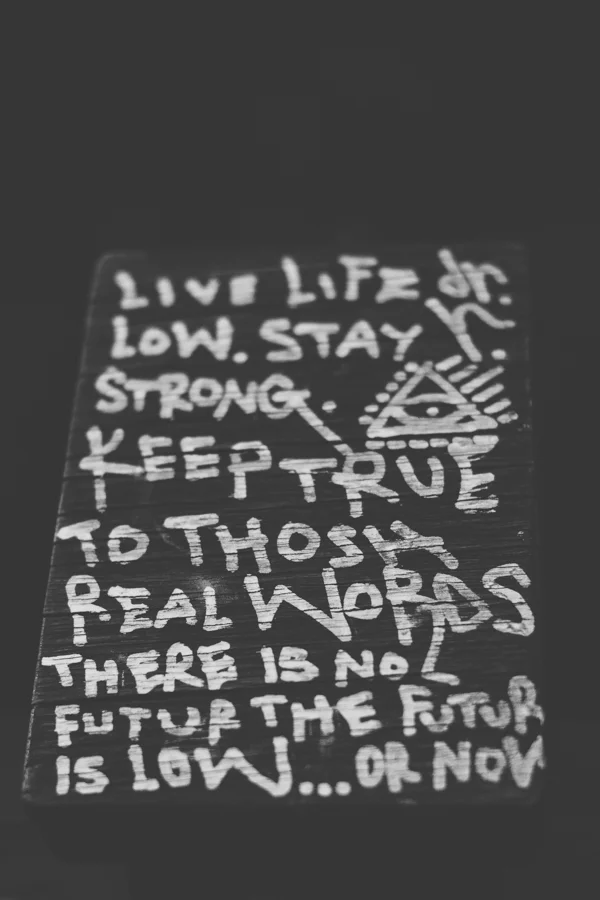 LIVE LIFE Jr.
LOW. STAY h.
STRONG.
KEEP TRUE
TO THOSH
REAL WORDS
THERE IS NO
FUTUR THE FUTUR
IS LOW...OR NOW